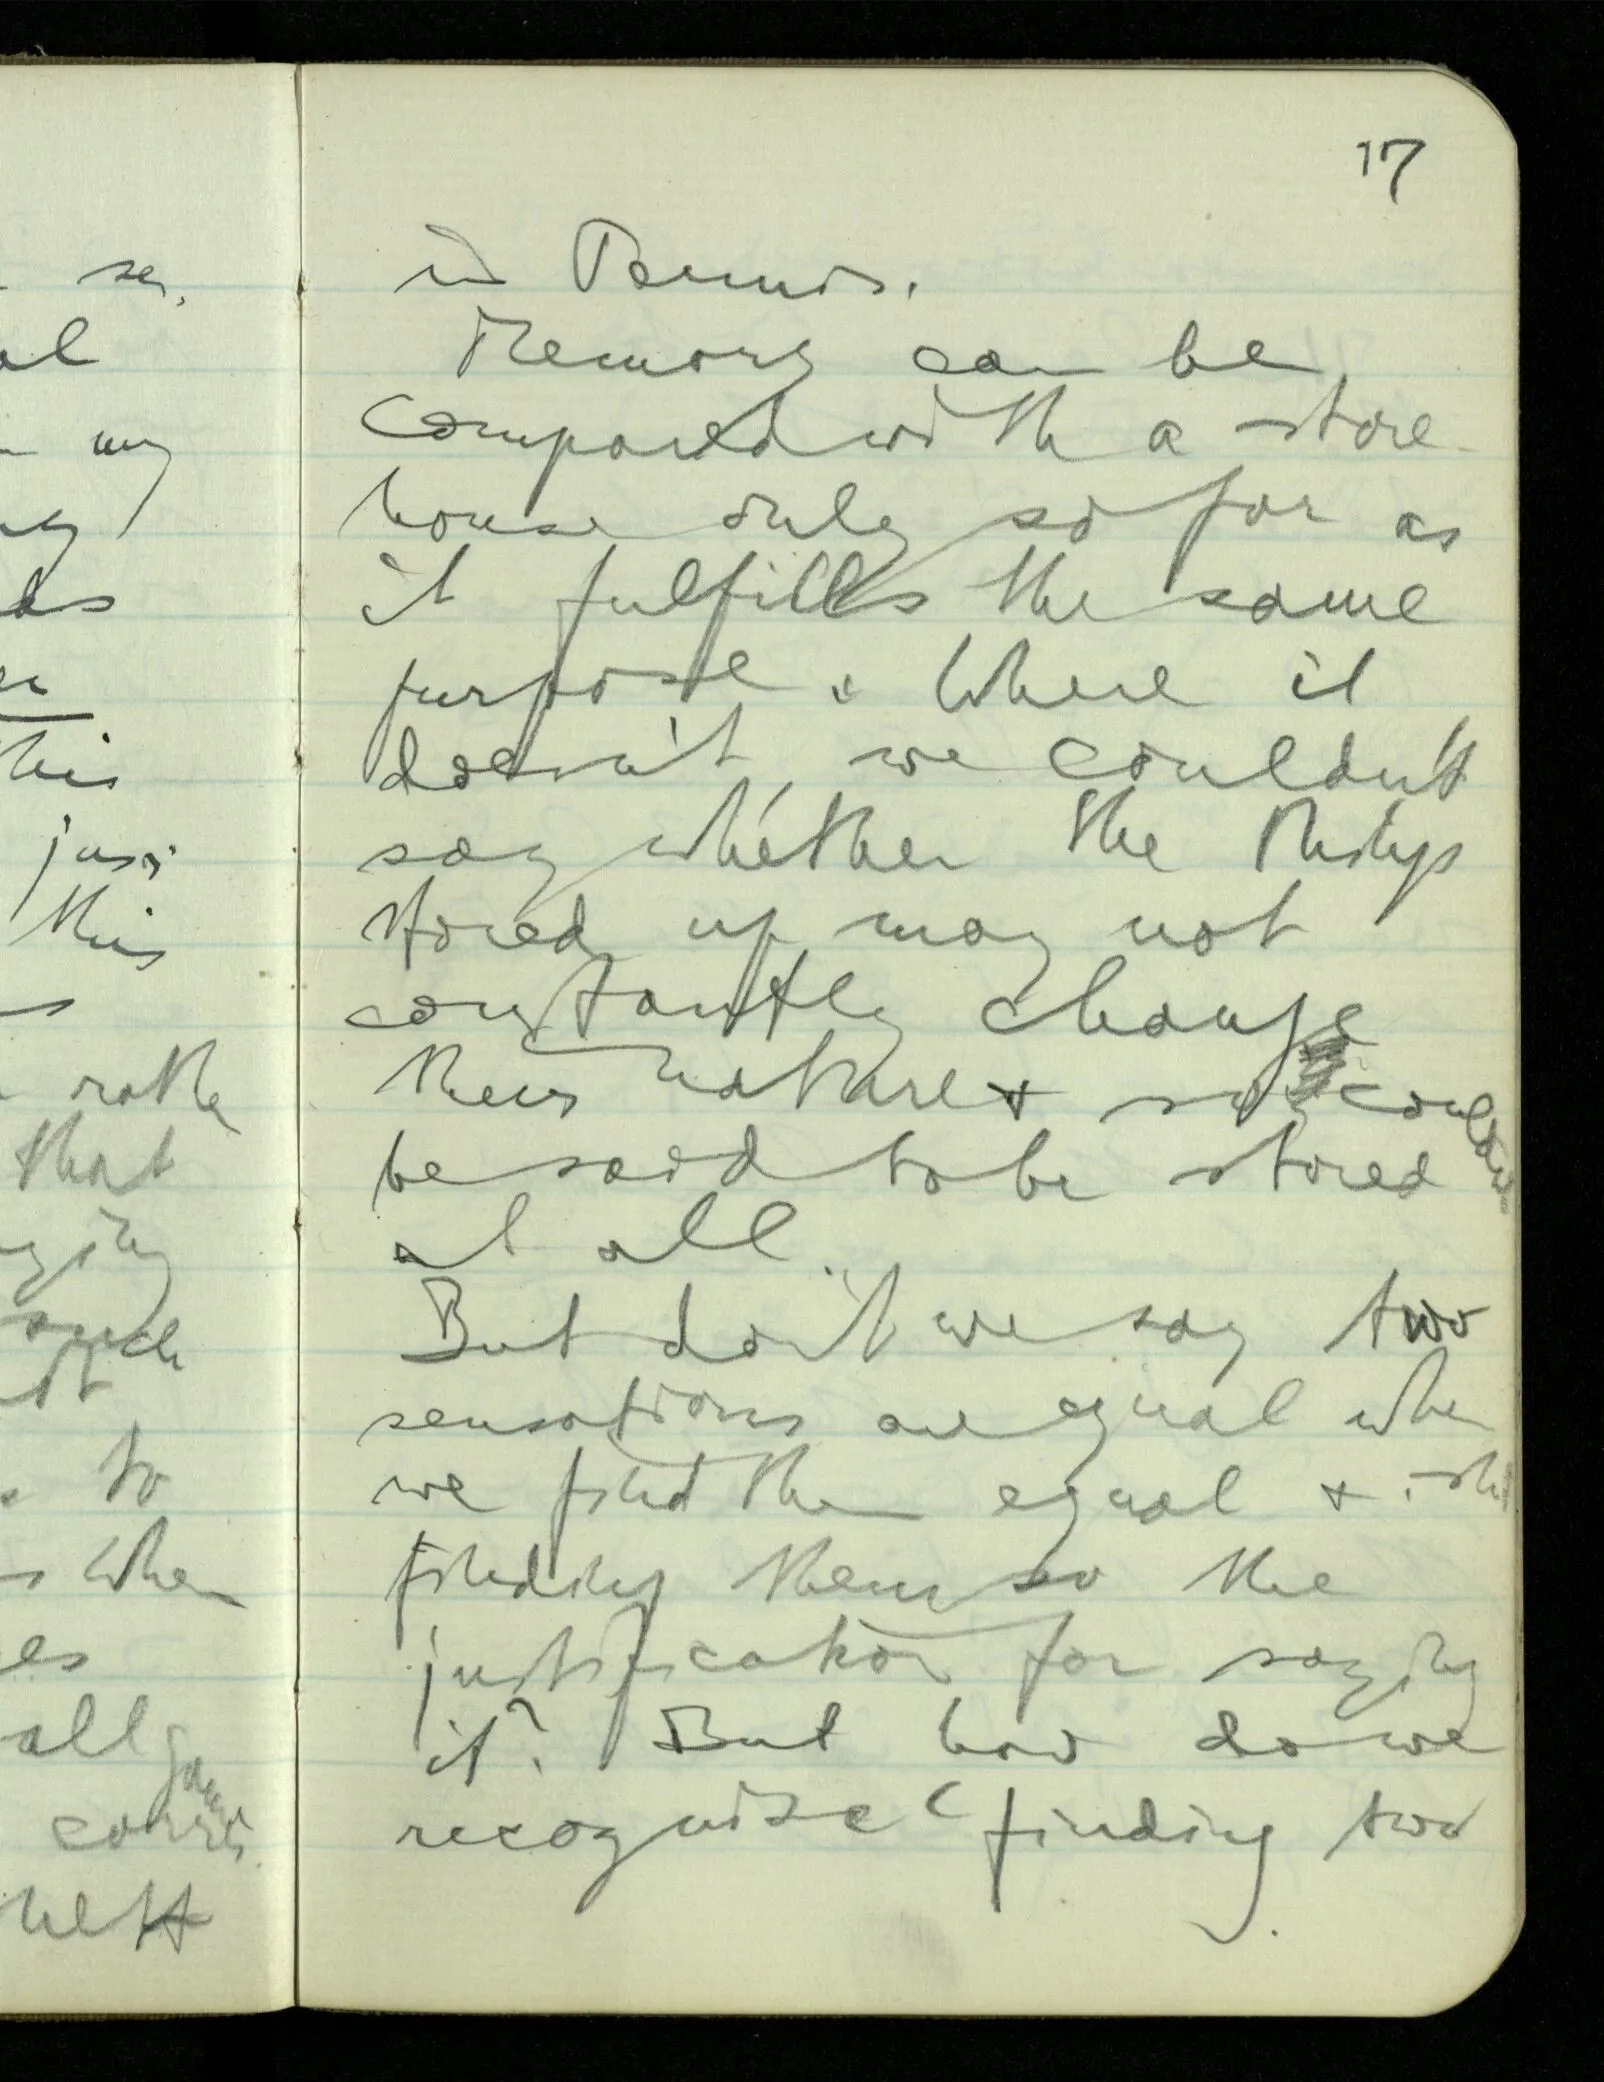 17
in Tennis.
Memory can be
compared with a store
house only so far as
it fulfills the same
purpose & Where it
doesn't, we couldn't
say whether the things
stored up may not
constantly change
their nature & so couldn't
be said to be stored
at all.
But don't we say two
sensations are equal when
we find them equal & isn't
finding them so the
justification for saying
it? But how do we
recognise 'finding two
my
this
just
this
rather
that
such
to
when
all